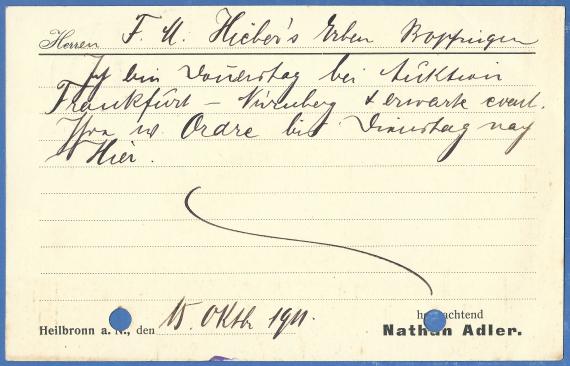 Herren F. A. Hieber's Erben Bopfingen
Ich bin Donnerstag bei Auktion
Frankfurt – Nürnberg & erwarte event.
Ihre w. Ordre bis Dienstag nach
Hier.
Heilbronn a. N., den 15. Oktbr 1911.
hochachtend
Nathan Adler.